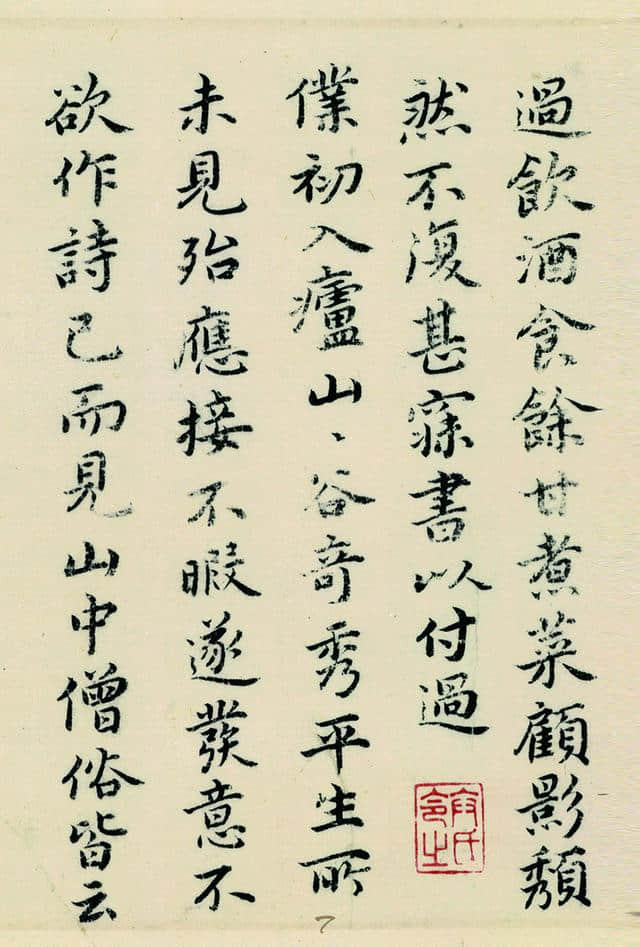 過飲酒食餘甘煮菜顧影頹
然不復甚寐書以付過
僕初入廬山〻谷奇秀平生所
未見殆應接不暇遂發意不
欲作詩已而見山中僧俗皆云
7